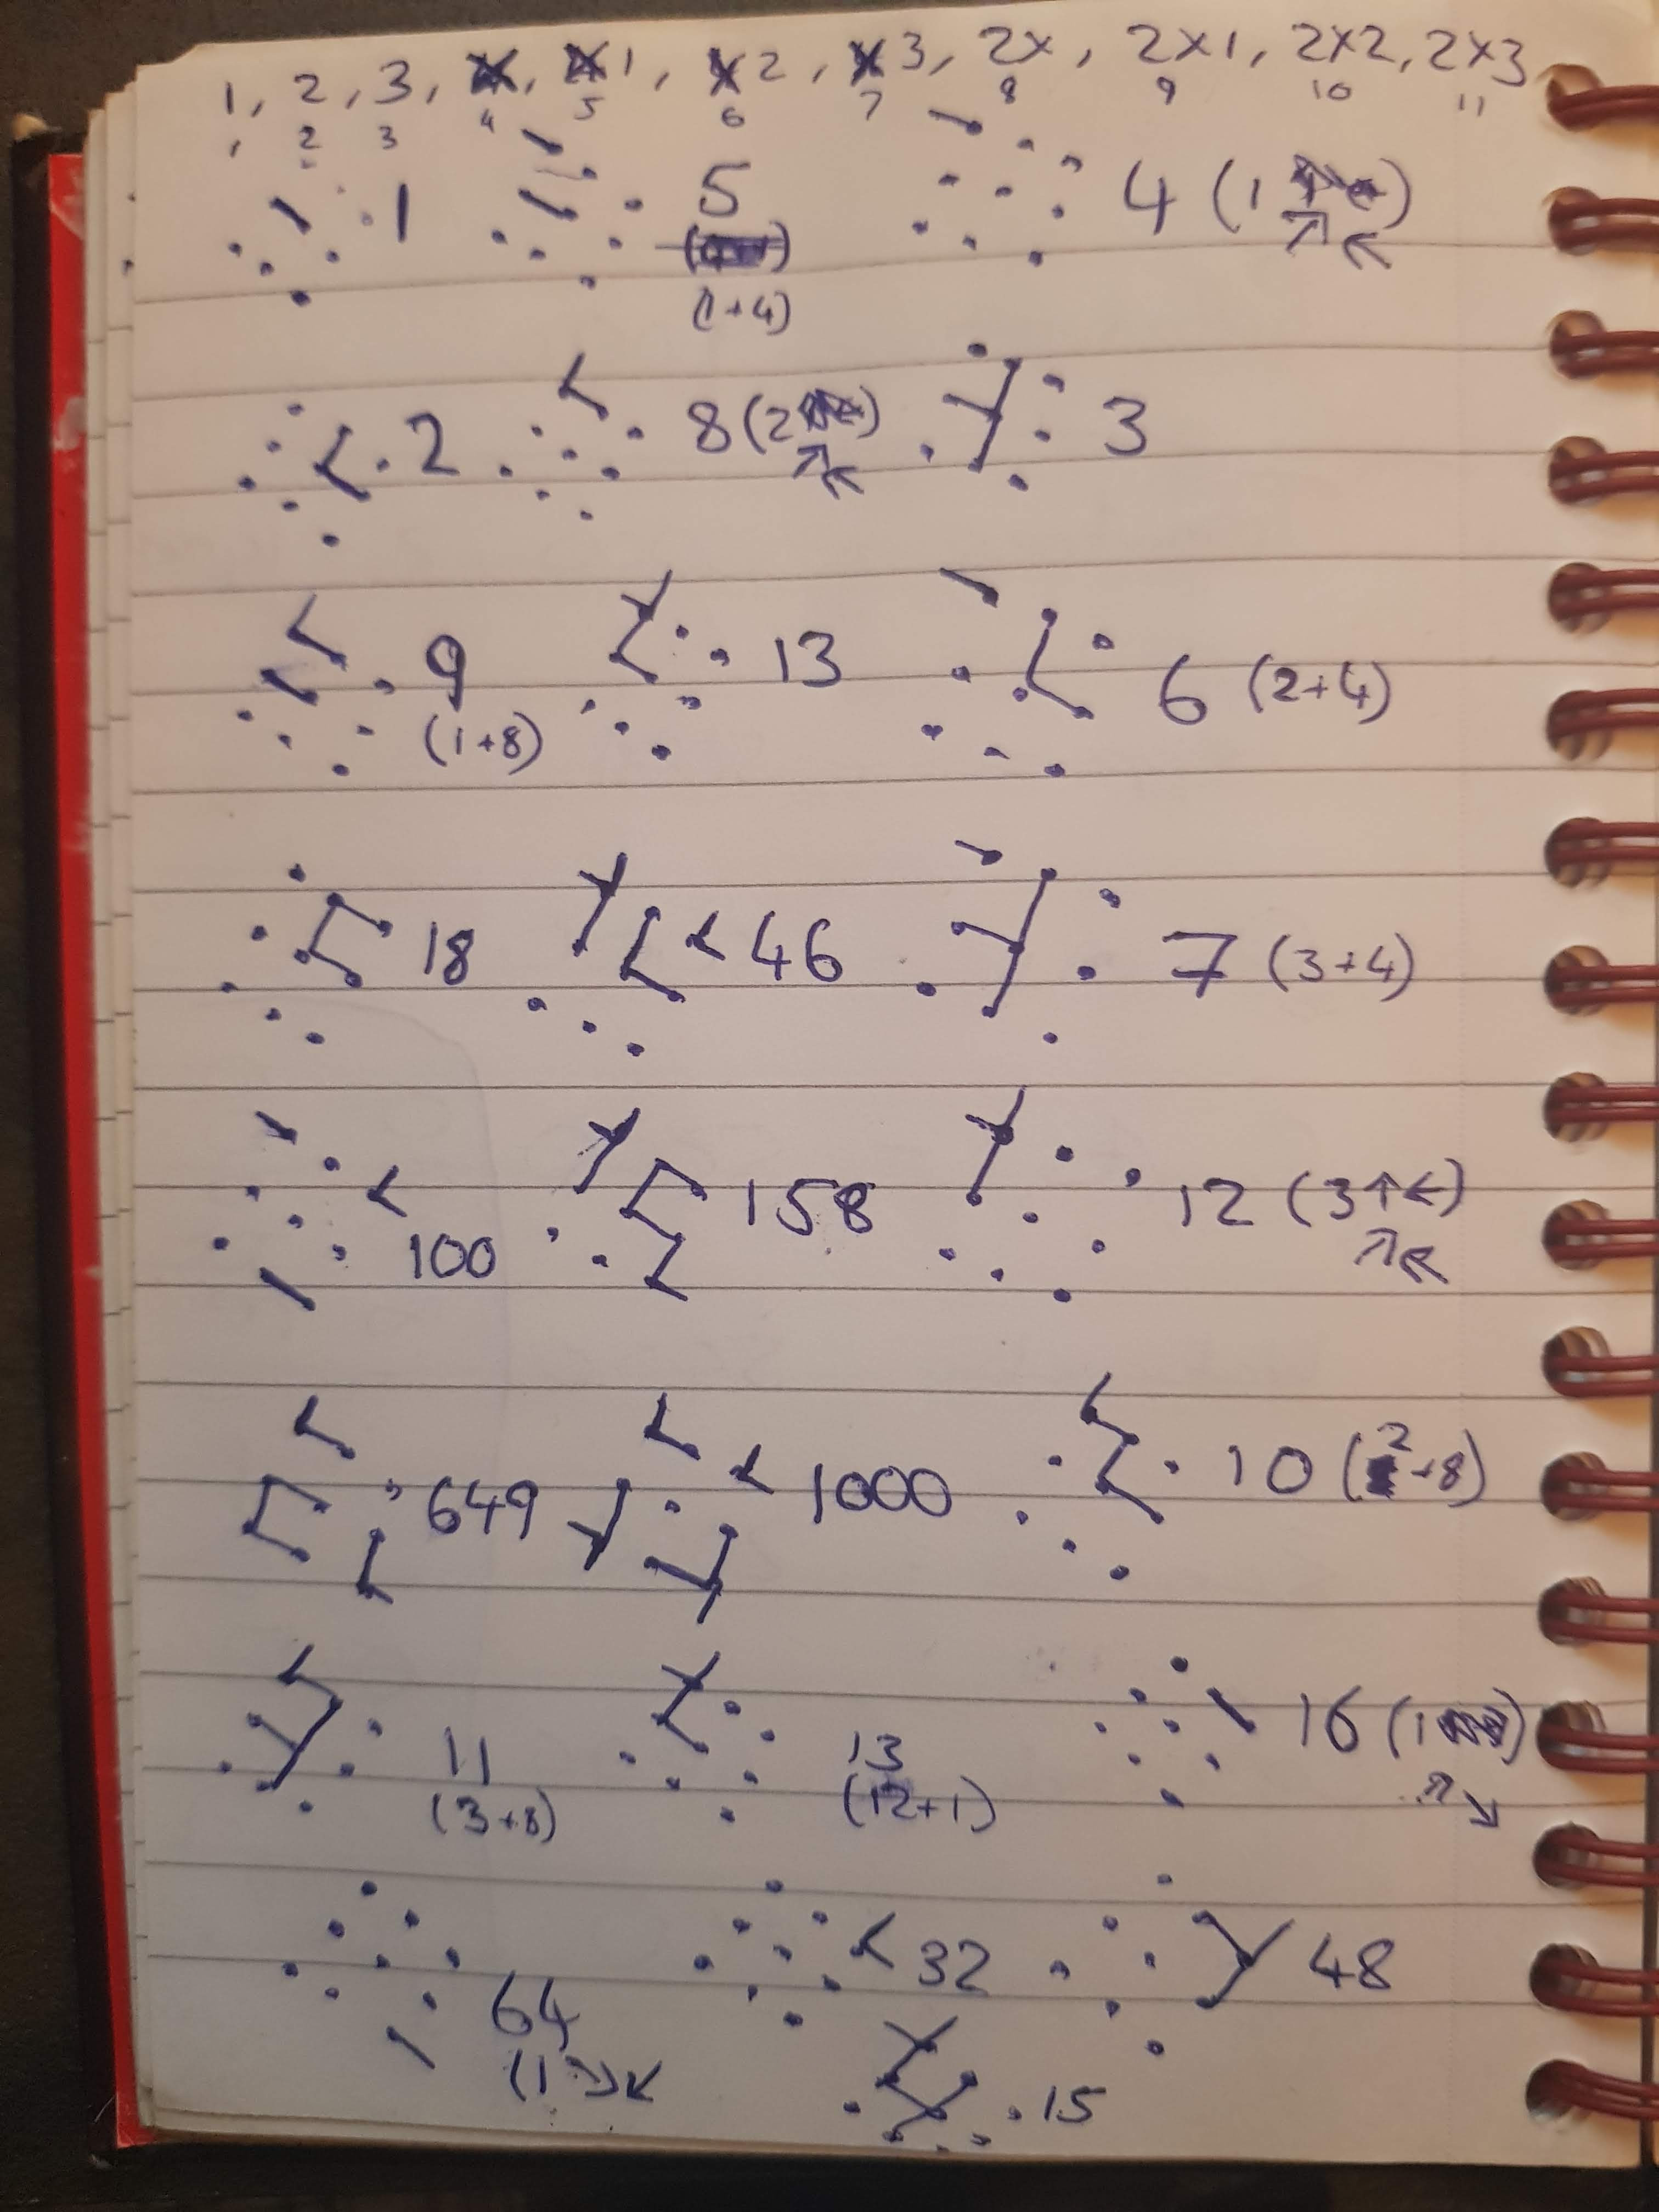 1, 2, 3, x, x1, x2, x3, 2x, 2x1, 2x2, 2x3
1 2 3 4 5 6 7 8 9 10 11
1 5 4 (1 ↗↖)
(1+4)
2 8 (2 ↗↖) 3
9 13 6 (2+4)
(1+8)
18 46 7 (3+4)
100 158 12 (3↑←)
↗↖
649 1000 10 (2+8)
11 13 16 (1
(3+8) (12+1) ↗↘
64 32 48
(1↘↙ 15